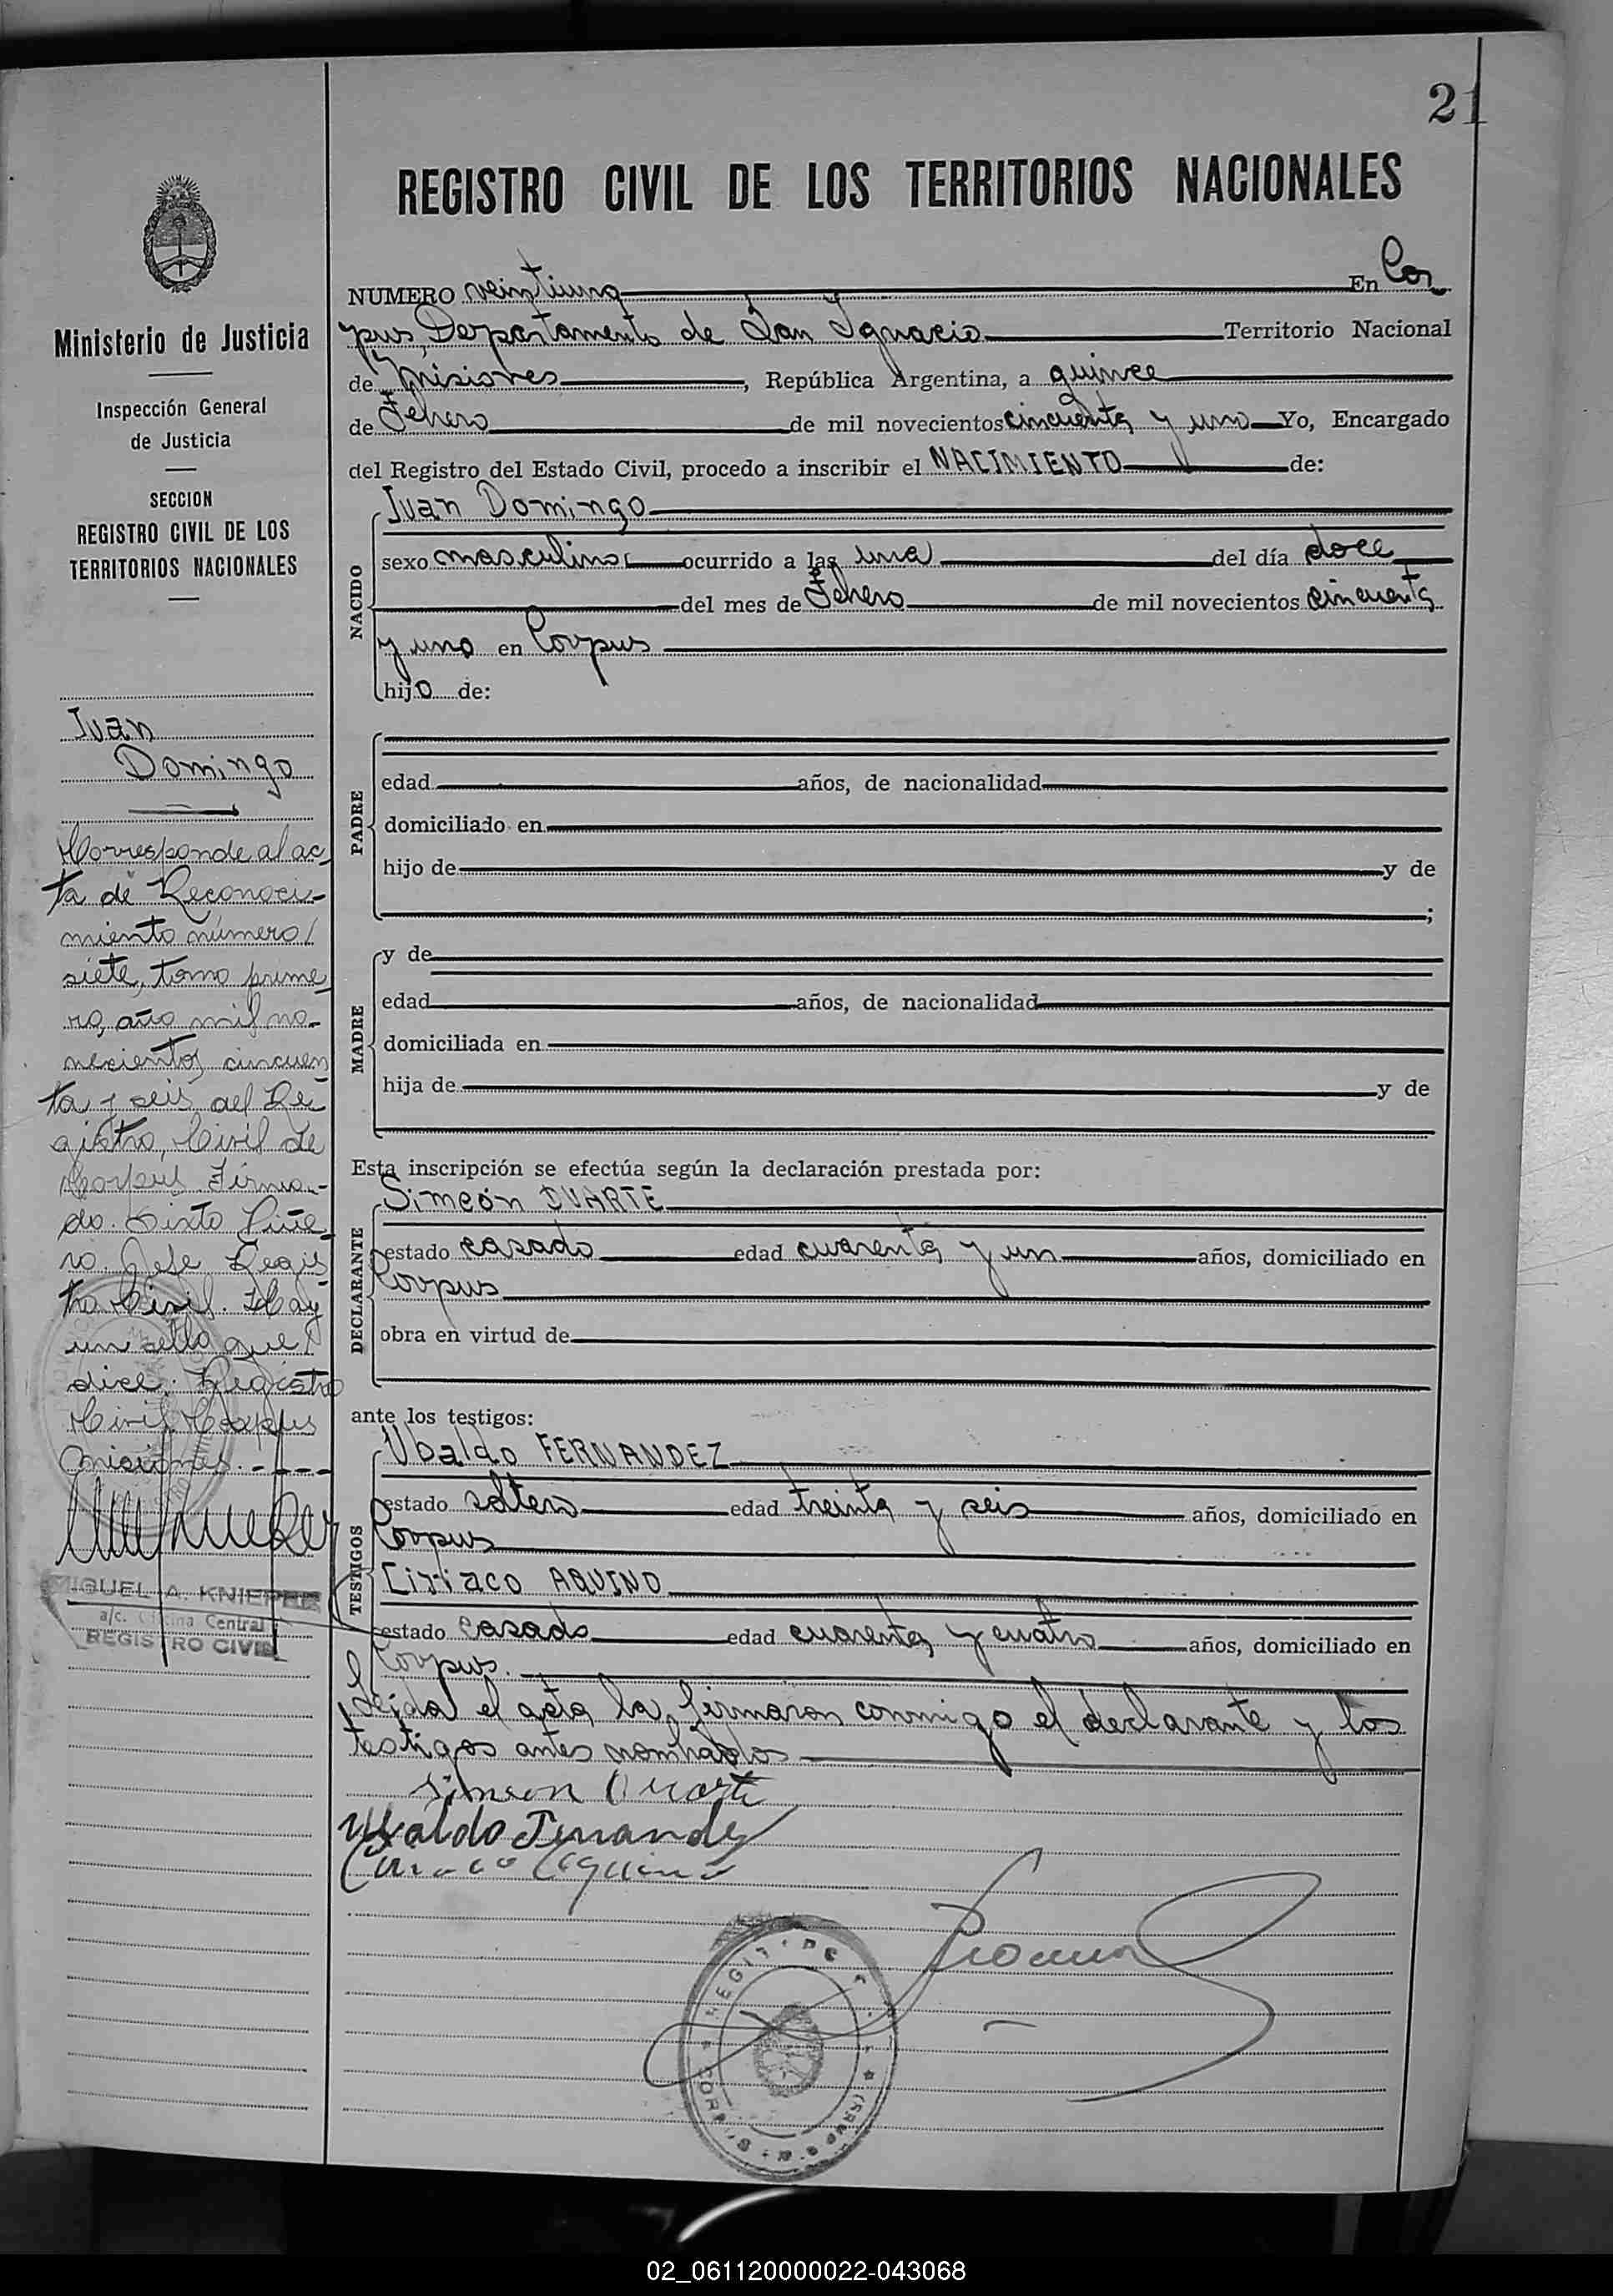 21
REGISTRO CIVIL DE LOS TERRITORIOS NACIONALES
Ministerio de Justicia
Inspección General
de Justicia
SECCION
REGISTRO CIVIL DE LOS
TERRITORIOS NACIONALES
Juan
Domingo
Corresponde al ac-
ta de Reconoci-
miento número/
siete, tomo prime
ro, año mil no-
vecientos cincuen
ta y seis del Re-
gistro, Civil de
Corpus Firma-
do. Sixto Piñe
ro. Jefe Regis
tro Civil. Hay
un sello que/
dice: Registro
Civil Corpus
Misiones.----
MIGUEL A. KNIEPER
a/c. Oficina Central
REGISTRO CIVIL
NUMERO veintiuno En Cor
pus, Departamento de San Ignacio Territorio Nacional
de Misiones, República Argentina, a quince
de Febrero de mil novecientos cincuenta y uno Yo, Encargado
del Registro del Estado Civil, procedo a inscribir el NACIMIENTO de:
NACIDO
Juan Domingo
sexo masculino ocurrido a las una del día doce
del mes de Febrero de mil novecientos cincuenta
y uno en Corpus
hijo de:
PADRE
edad años, de nacionalidad
domiciliado en
hijo de y de
;
MADRE
y de
edad años, de nacionalidad
domiciliada en
hija de y de
Esta inscripción se efectúa según la declaración prestada por:
DECLARANTE
Simeón DUARTE
estado casado edad cuarenta y un años, domiciliado en
Corpus
obra en virtud de
ante los testigos:
TESTIGOS
Ubaldo FERNANDEZ
estado soltero edad treinta y seis años, domiciliado en
Corpus
Ciriaco AQUINO
estado casado edad cuarenta y cuatro años, domiciliado en
Corpus.
Leida el acta la firmaron conmigo el declarante y los
testigos antes nombrados
Simeon Duarte
Ubaldo Fernandez
Ciriaco Aquino
02_061120000022-043068